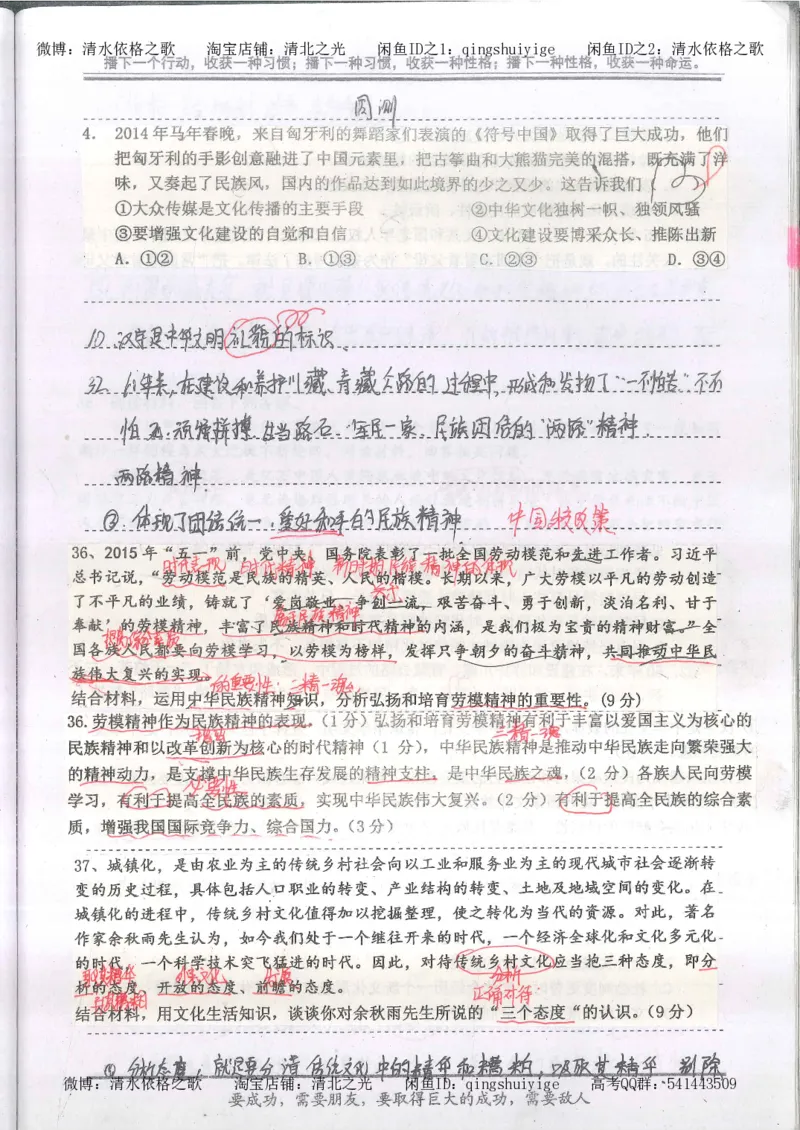 微博：清水依格之歌 淘宝店铺：清北之光 闲鱼ID之1：qingshuiyige 闲鱼ID之2：清水依格之歌
播下一个行动，收获一种习惯；播下一种习惯，收获一种性格；播下一种性格，收获一种命运。
周测
4. 2014年马年春晚，来自匈牙利的舞蹈家们表演的《符号中国》取得了巨大成功，他们
把匈牙利的手影创意融进了中国元素里，把古筝曲和大熊猫完美的混搭，既充满了洋
味，又奏起了民族风，国内的作品达到如此境界的少之又少。这告诉我们（ ）
①大众传媒是文化传播的主要手段 ②中华文化独树一帜、独领风骚
③要增强文化建设的自觉和自信 ④文化建设要博采众长、推陈出新
A．①② B．①③ C．②③ D．③④
10. 汉字是中华文明的标识
32. 61年来，在建设和养护川藏、青藏公路的过程中，形成和发扬了"一不怕苦"不
怕死，顽强拼搏，甘当路石，军民一家，民族团结的"两路"精神．
两路精神
② 体现了团结统一，爱好和平的民族精神 中国特政策
36、2015年"五一"前，党中央、国务院表彰了一批全国劳动模范和先进工作者。习近平
时代精神
总书记说，"劳动模范是民族的精英、人民的楷模。长期以来，广大劳模以平凡的劳动创造
了不平凡的业绩，铸就了'爱岗敬业、争创一流，艰苦奋斗、勇于创新，淡泊名利、甘于
民族精神
奉献'的劳模精神，丰富了民族精神和时代精神的内涵，是我们极为宝贵的精神财富。"全
国各族人民都要向劳模学习，以劳模为榜样，发挥只争朝夕的奋斗精神，共同推动中华民
族伟大复兴的实现。
的重要性：二精一魂
结合材料，运用中华民族精神知识，分析弘扬和培育劳模精神的重要性。(9分)
36.劳模精神作为民族精神的表现，（1分）弘扬和培育劳模精神有利于丰富以爱国主义为核心的
二精一魂
民族精神和以改革创新为核心的时代精神（1分），中华民族精神是推动中华民族走向繁荣强大
的精神动力，是支撑中华民族生存发展的精神支柱，是中华民族之魂，（2分）各族人民向劳模
必要性
学习，有利于提高全民族的素质，实现中华民族伟大复兴。（2分）有利于提高全民族的综合素
质，增强我国国际竞争力、综合国力。（3分）
37、城镇化，是由农业为主的传统乡村社会向以工业和服务业为主的现代城市社会逐渐转
变的历史过程，具体包括人口职业的转变、产业结构的转变、土地及地域空间的变化。在
城镇化的进程中，传统乡村文化值得加以挖掘整理，使之转化为当代的资源。对此，著名
作家余秋雨先生认为，如今我们处于一个继往开来的时代，一个经济全球化和文化多元化
的时代，一个科学技术突飞猛进的时代。因此，对待传统乡村文化应当抱三种态度，即分
取其精华 传统文化 发展 分析
析的态度、开放的态度、前瞻的态度。
去其糟粕 正确对待
结合材料，用文化生活知识，谈谈你对余秋雨先生所说的"三个态度"的认识。（9分）
① 分析态度：就是要分清传统文化中的精华和糟粕，吸取其精华 剔除
微博：清水依格之歌 淘宝店铺：清北之光 闲鱼ID：qingshuiyige 高考QQ群：541443509
要成功，需要朋友，要取得巨大的成功，需要敌人